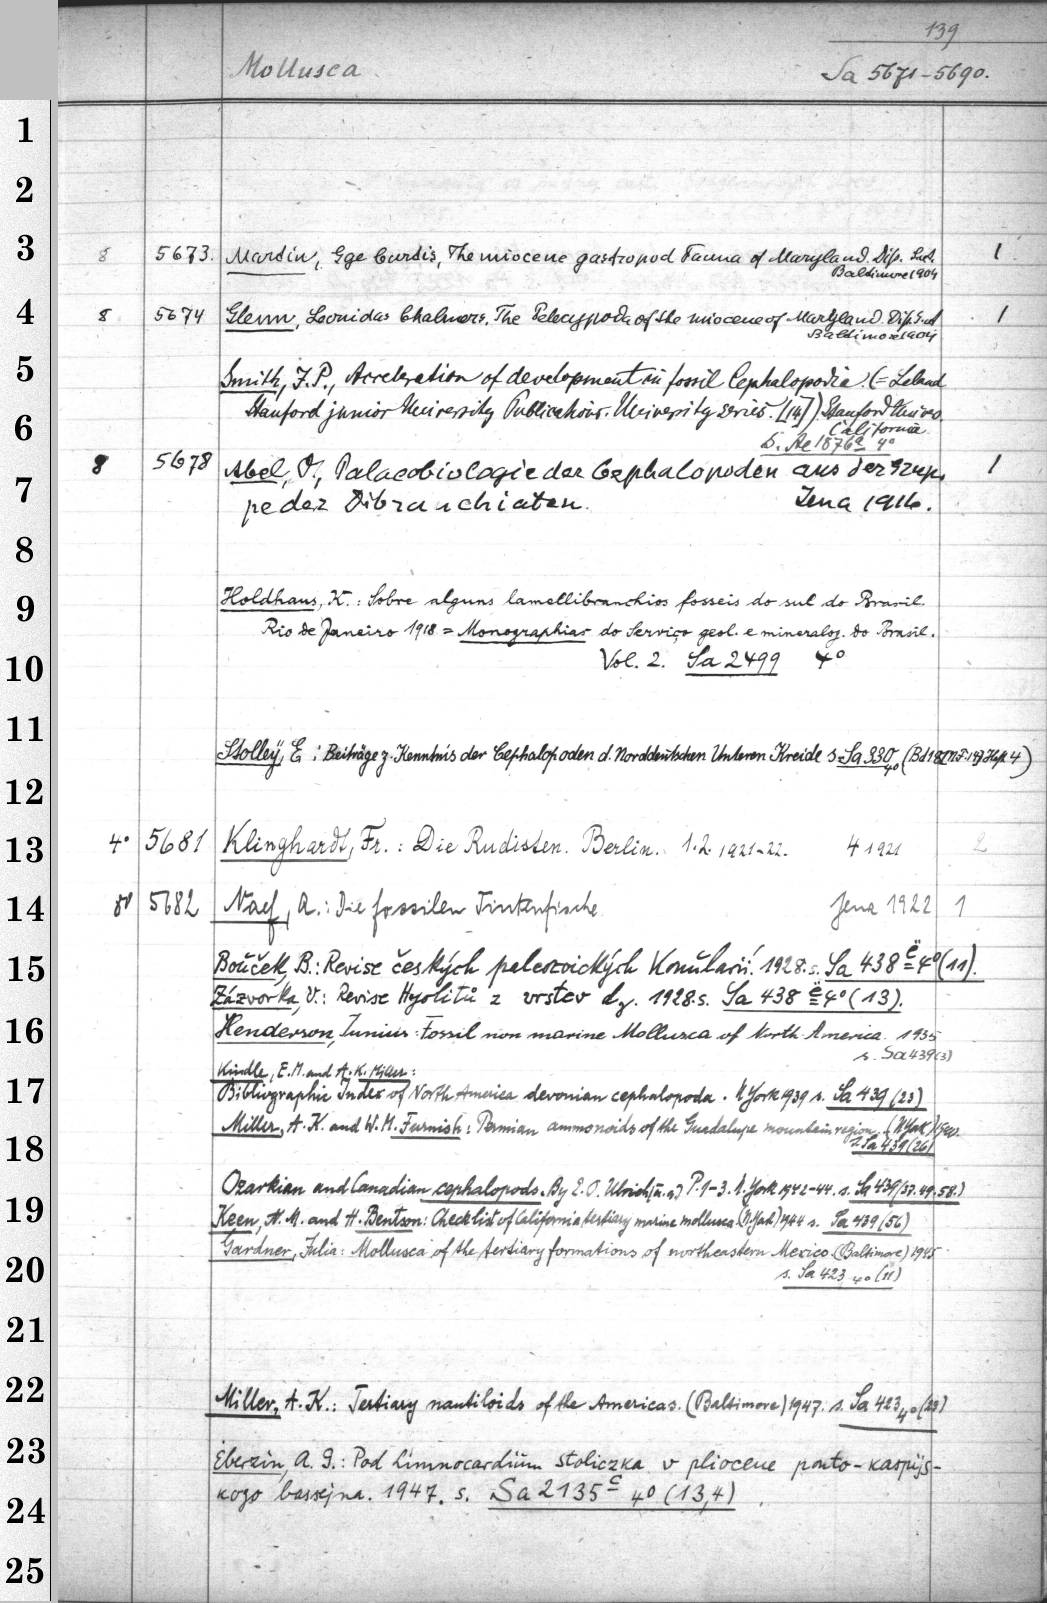 139
Mollusca Sa 5671-5690.
1
2
3
8 5673. Martin, Gge Curtis, The miocene gastropod Fauna of Maryland. Diss. 1
Baltimore 1904
4
8 5674 Glenn, Leonidas Chalmers, The Pelecypoda of the miocene of Maryland. Diss. 1
Baltimore 1904
5
Smith, J.P., Acceleration of development in fossil Cephalopodia (= Leland
Stanford junior University Publications. University series. [14]) Stanford Univ.
6
California
s. Ae 1876a 4°
8 5678 Abel, O., Palaeobiologie der Cephalopoden aus der Grup- 1
7
pe der Dibranchiaten. Jena 1916.
8
9
Holdhaus, K.: Sobre alguns lamellibranchios fosseis do sul do Brasil.
Rio de Janeiro 1918 = Monographias do Serviço geol. e mineralog. do Brasil.
10
Vol. 2. Sa 2499 4°
11
Stolley, E.: Beiträge z. Kenntnis der Cephalopoden d. Norddeutschen Unteren Kreide s. Sa 330 4° (Bd 18 [N.F. 14] Heft 4)
12
13
4° 5681 Klinghardt, Fr.: Die Rudisten. Berlin. 1.2. 1921-22. 4 1921 2
14
8° 5682 Naef, A.: Die fossilen Tintenfische Jena 1922 1
15
Bouček, B.: Revise českých paleozoických Konulárií. 1928. s. Sa 438 ë 4° (11).
Zázvorka, V.: Revise Hyolitů z vrstev dγ. 1928. s. Sa 438 ë 4° (13).
16
Henderson, Junius: Fossil non marine Mollusca of North America. 1935
s. Sa 439 (3)
Kindle, E.M. and A.K. Miller:
17
Bibliographic Index of North America devonian cephalopoda. N York 1939 s. Sa 439 (23)
Miller, A.K. and W.M. Furnish: Permian ammonoids of the Guadalupe mountain region. (N York) 1940.
18
s. Sa 439 (26)
Ozarkian and Canadian cephalopods. By E.O. Ulrich [u.a.] P. 1-3. N. York 1942-44. s. Sa 439 (37. 49. 58.)
19
Keen, A.M. and H. Bentson: Check list of California tertiary marine mollusca. (N. York) 1944 s. Sa 439 (56)
Gardner, Julia: Mollusca of the tertiary formations of northeastern Mexico. (Baltimore) 1945
20
s. Sa 423 4° (11)
21
22
Miller, A.K.: Tertiary nautiloids of the Americas. (Baltimore) 1947. s. Sa 423 4° (23)
23
Eberzin, A.G.: Pod Limnocardium Stoliczka v pliocene ponto-kaspijs-
kogo bassejna. 1947. s. Sa 2135 c 4° (13,4)
24
25